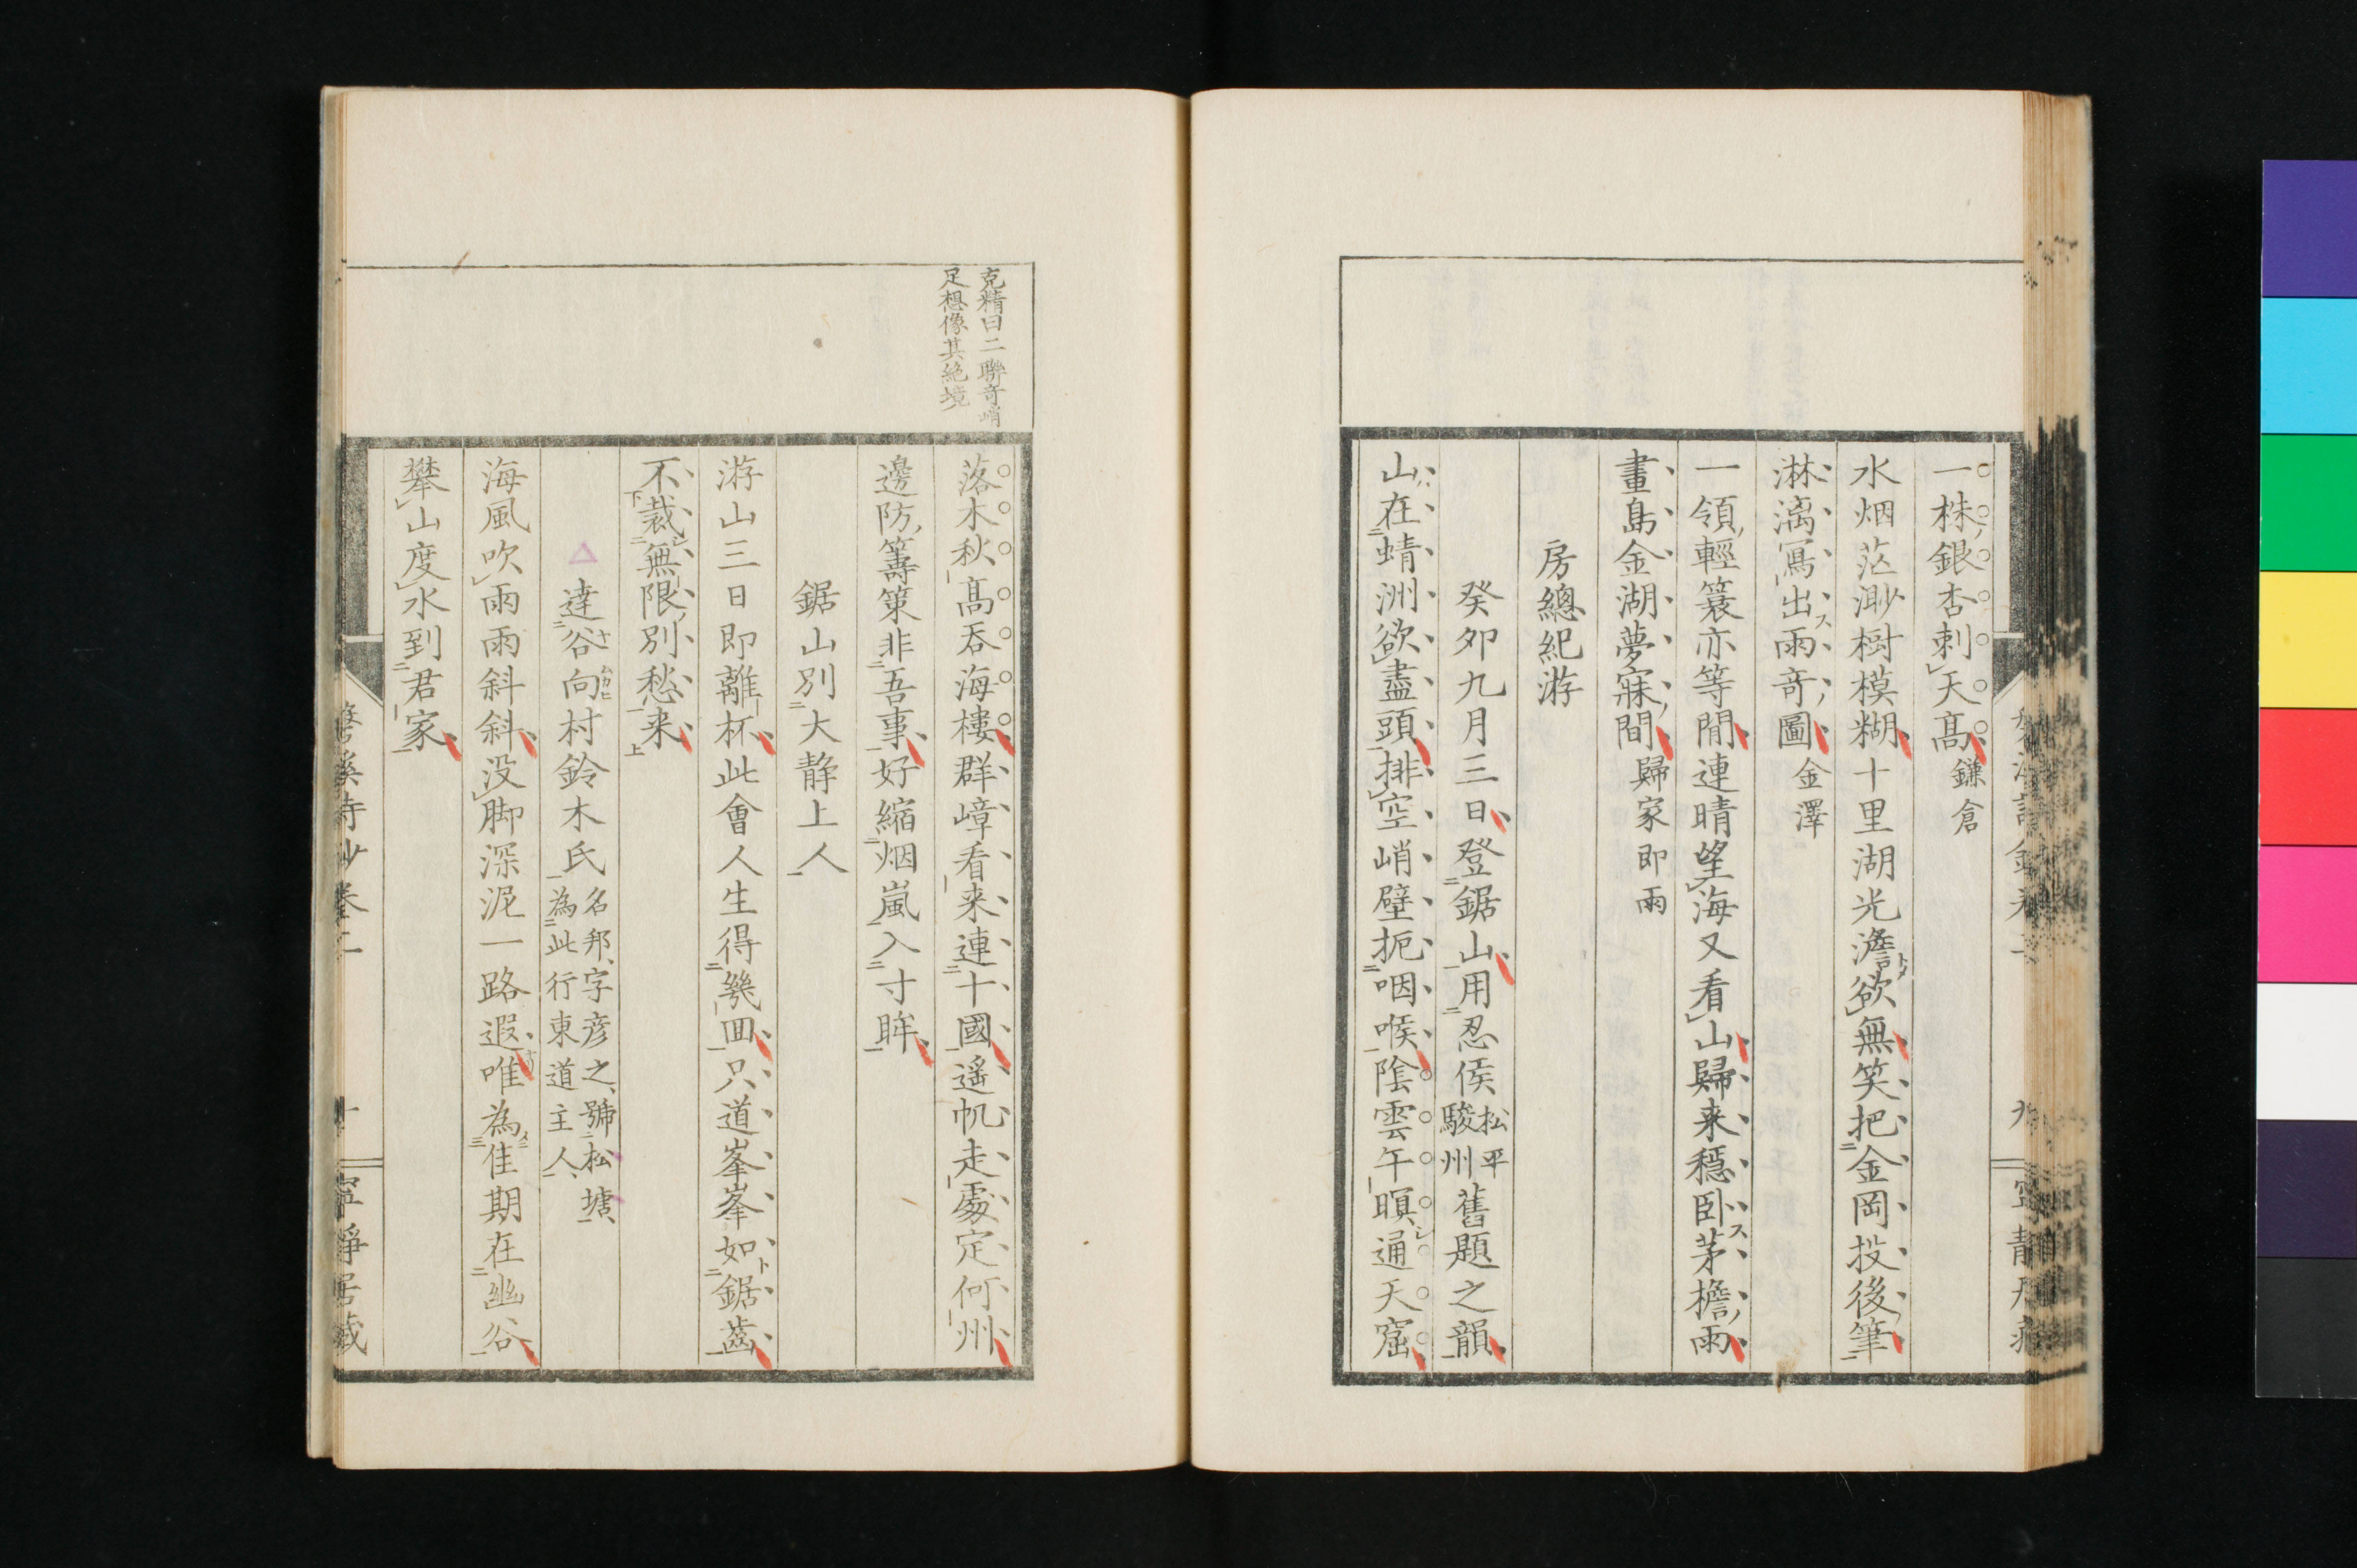 一株銀杏刺天髙鎌倉
水烟茫渺樹模糊十里湖光澹欲無笑把金岡投後筆
淋漓寫出雨奇圖金澤
一領輕簑亦等閒連晴望海又看山歸来穩卧茅檐雨
畫島金湖夢寐間歸家即雨
房總紀游
癸夘九月三日登鋸山用忍侯松平駿州舊題之韻
山在蜻洲欲盡頭排空峭壁扼咽喉陰雲午暝通天窟
克精曰二聯奇峭
足想像其絶境
落木秋髙吞海樓群嶂看来連十國遥帆走處定何州
邊防籌策非吾事好縮烟嵐入寸眸
鋸山別大静上人
游山三日即離杯此會人生得幾回只道峯峯如鋸齒
不裁無限別愁来
達谷向村鈴木氏名邦字彦之號松塘為此行東道主人
海風吹雨雨斜斜没脚深泥一路遐唯為佳期在幽谷
攀山度水到君家